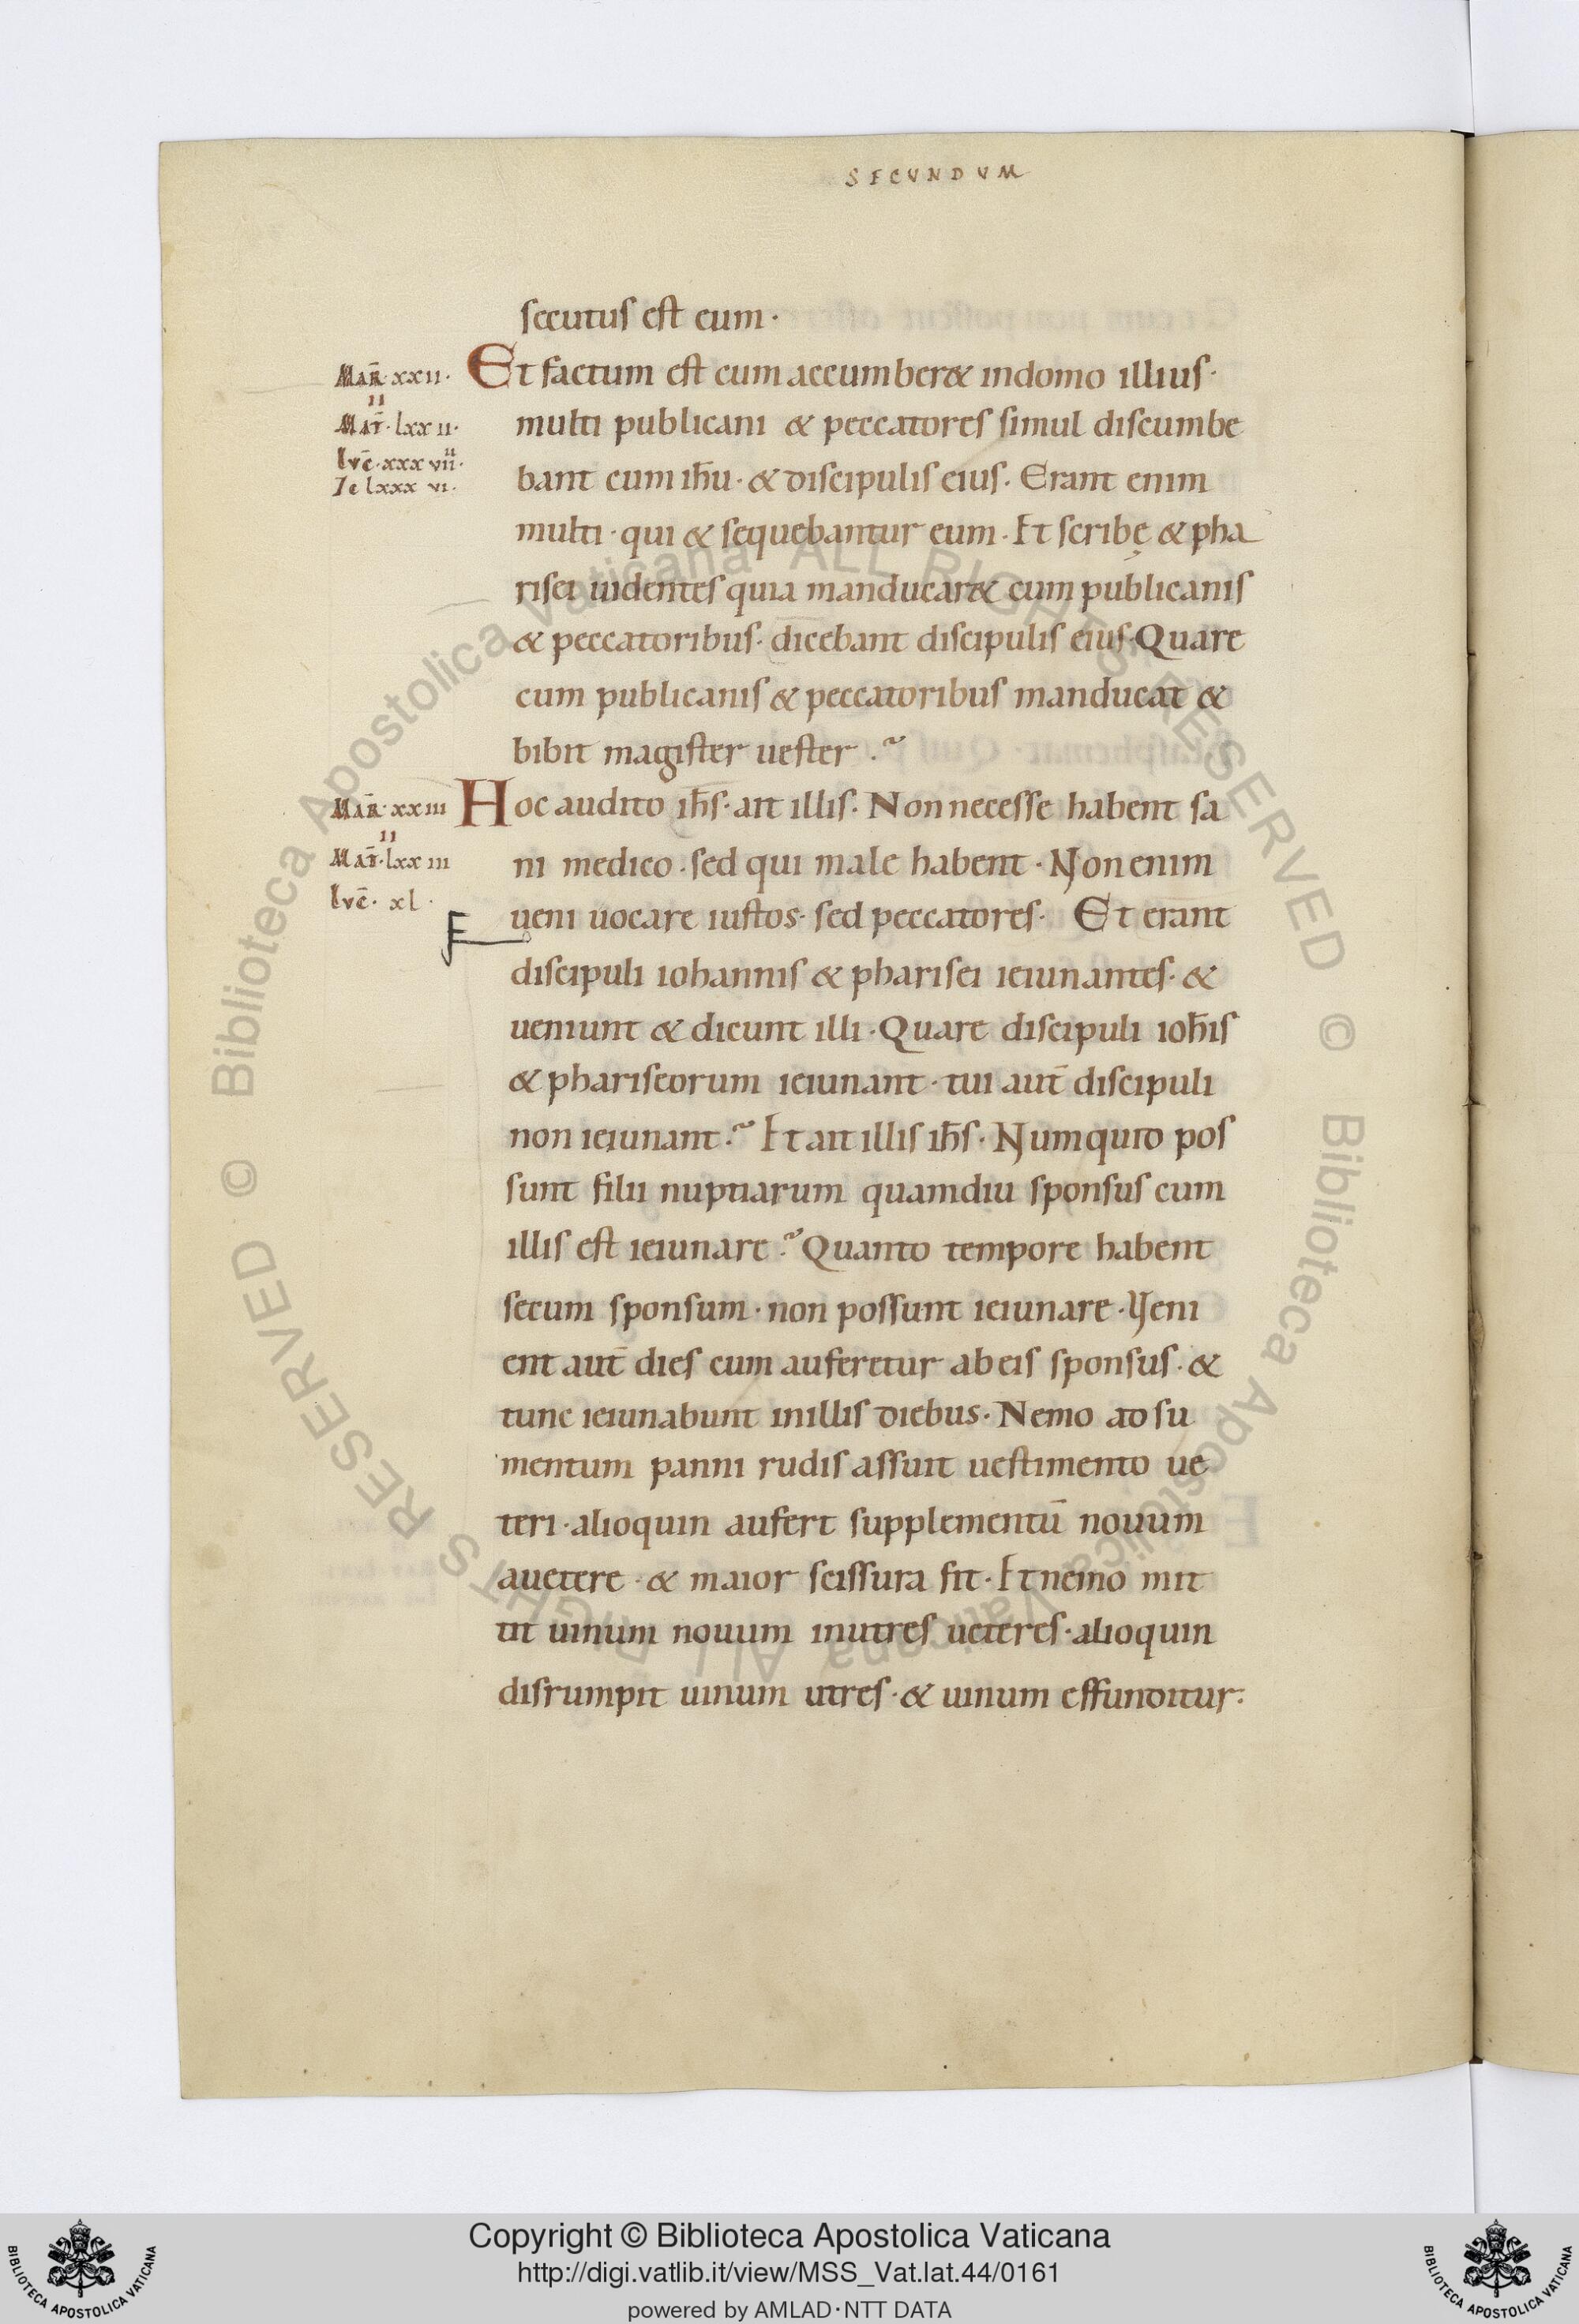 SECUNDUM
secutus est eum·
Mar̄·xxii·
ii
Mat̄·lxxii·
Luc̄·xxxviii·
Io lxxxvi·
Et factum est cum accumber& indomo illius·
multi publicani & peccatores simul discumbe
bant cum ih̄u·& discipulis eius· Erant enim
multi·qui & sequebantur eum· Et scribę & pha
risei uidentes quia manducar& cum publicanis
& peccatoribus· dicebant discipulis eius·Quare
cum publicanis & peccatoribus manducat &
bibit magister uester ?
Mar̄·xxiii
ii
Mat̄·lxxiii
Luc̄·xl·
Hoc audito ih̄s·ait illis· Non necesse habent sa
ni medico·sed qui male habent·Non enim
ueni uocare iustos· sed peccatores· Et erant
F
discipuli iohannis & pharisei ieiunantes·&
ueniunt & dicunt illi·Quare discipuli ioh̄is
& phariseorum ieiunant·tui aut̄ discipuli
non ieiunant? Et ait illis ih̄s·Numquid pos
sunt filii nuptiarum quamdiu sponsus cum
illis est ieiunare? Quanto tempore habent
secum sponsum·non possunt ieiunare·Veni
ent aut̄ dies cum auferetur abeis sponsus·&
tunc ieiunabunt inillis diebus·Nemo adsu
mentum panni rudis assuit uestimento ue
teri·alioquin aufert supplementū nouum
auetere·& maior scissura fit·Et nemo mit
tit uinum nouum inutres ueteres·alioquin
disrumpit uinum utres·& uinum effunditur:
Copyright © Biblioteca Apostolica Vaticana
http://digi.vatlib.it/view/MSS_Vat.lat.44/0161
powered by AMLAD·NTT DATA
BIBLIOTECA APOSTOLICA VATICANA
BIBLIOTECA APOSTOLICA VATICANA
© Biblioteca Apostolica Vaticana ALL RIGHTS RESERVED
© Biblioteca Apostolica Vaticana ALL RIGHTS RESERVED